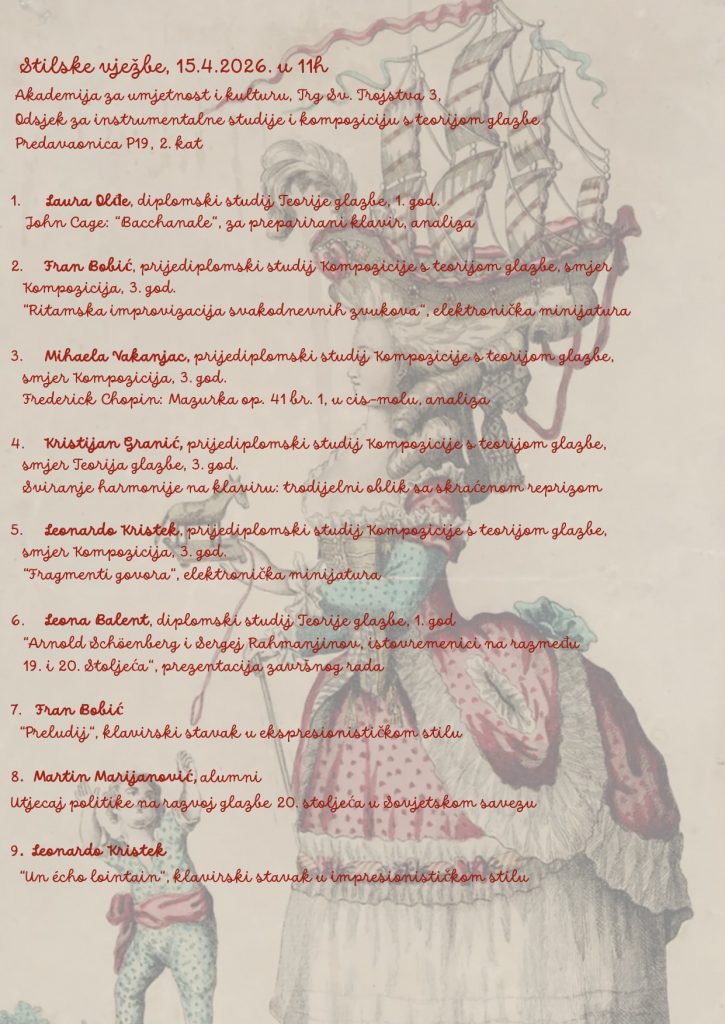 Stilske vježbe, 15.4.2026. u 11h
Akademija za umjetnost i kulturu, Trg Sv. Trojstva 3,
Odsjek za instrumentalne studije i kompoziciju s teorijom glazbe
Predavaonica P19, 2. kat
1. Laura Olđe, diplomski studij Teorije glazbe, 1. god.
John Cage: "Bacchanale", za preparirani klavir, analiza
2. Fran Bobić, prijediplomski studij Kompozicije s teorijom glazbe, smjer
Kompozicija, 3. god.
"Ritamska improvizacija svakodnevnih zvukova", elektronička minijatura
3. Mihaela Vakanjac, prijediplomski studij Kompozicije s teorijom glazbe,
smjer Kompozicija, 3. god.
Frederick Chopin: Mazurka op. 41 br. 1, u cis-molu, analiza
4. Kristijan Granić, prijediplomski studij Kompozicije s teorijom glazbe,
smjer Teorija glazbe, 3. god.
Sviranje harmonije na klaviru: trodijelni oblik sa skraćenom reprizom
5. Leonardo Kristek, prijediplomski studij Kompozicije s teorijom glazbe,
smjer Kompozicija, 3. god.
"Fragmenti govora", elektronička minijatura
6. Leona Balent, diplomski studij Teorije glazbe, 1. god
"Arnold Schöenberg i Sergej Rahmanjinov, istovremenici na razmeđu
19. i 20. Stoljeća", prezentacija završnog rada
7. Fran Bobić
"Preludij", klavirski stavak u ekspresionističkom stilu
8. Martin Marijanović, alumni
Utjecaj politike na razvoj glazbe 20. stoljeća u Sovjetskom savezu
9. Leonardo Kristek
"Un écho lointain", klavirski stavak u impresionističkom stilu